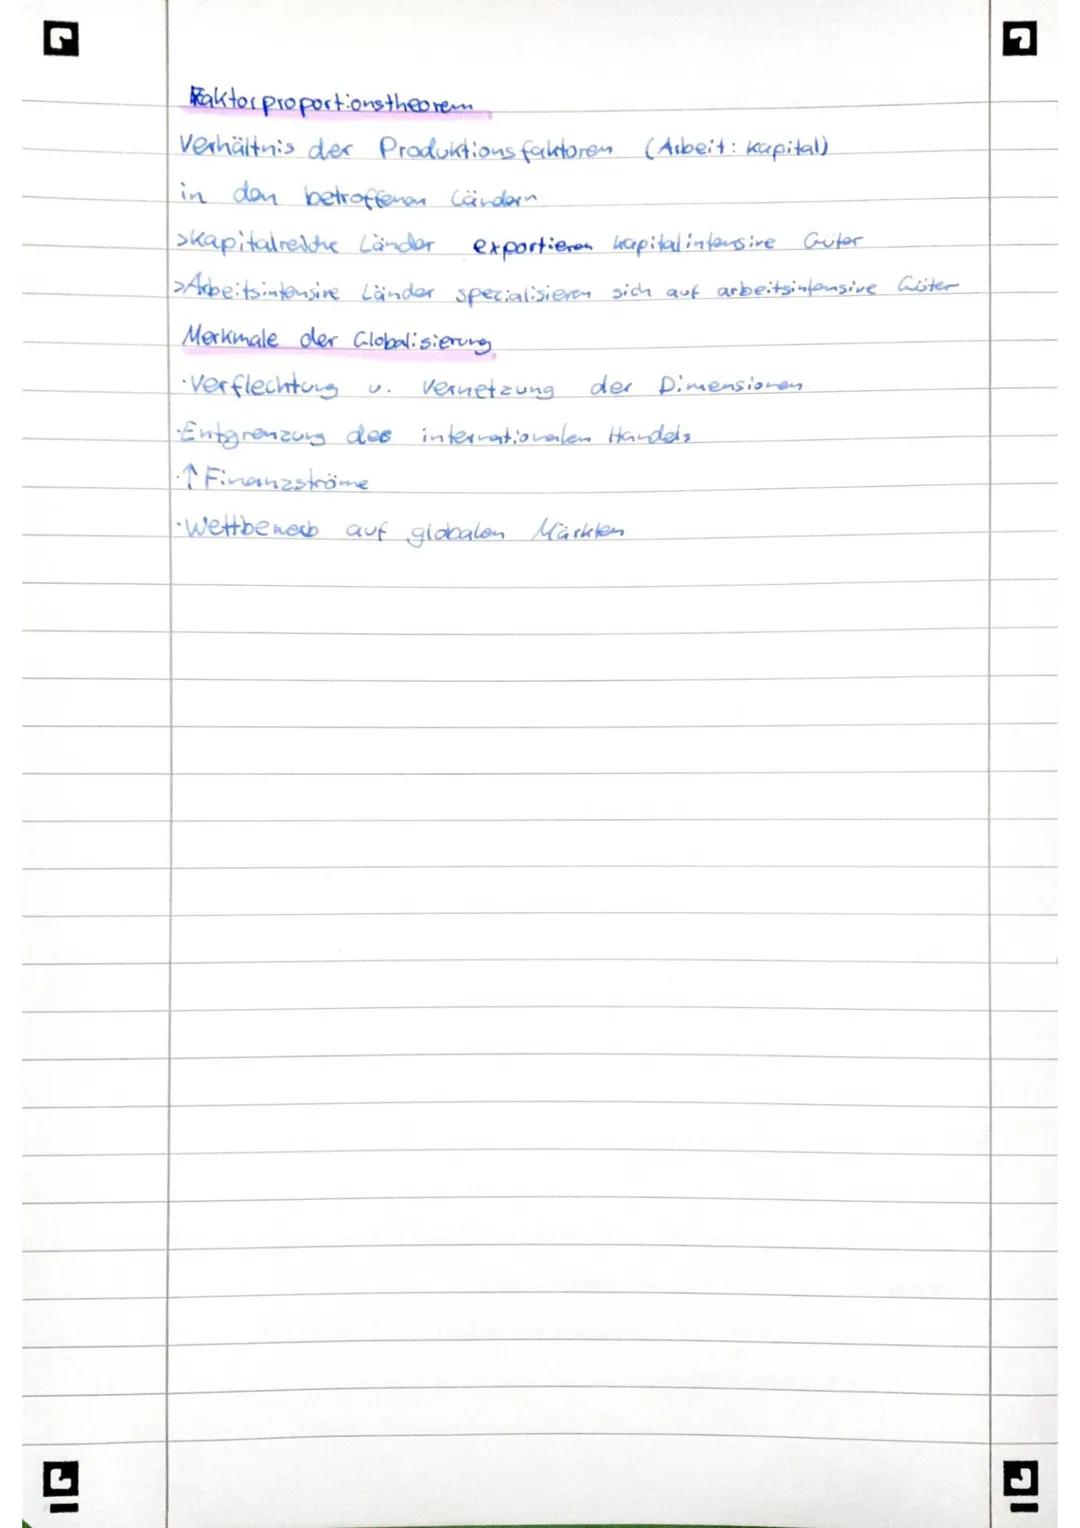 Faktorproportionstheorem
Verhältnis der Produktionsfaktoren (Arbeit: Kapital)
in den betroffenen Ländern
>Kapitalreiche Länder exportieren kapitalintensive Güter
>Arbeitsintensive Länder spezialisieren sich auf arbeitsintensive Güter
Merkmale der Globalisierung
·Verflechtung u. Vernetzung der Dimensionen
·Entgrenzung des internationalen Handels
·↑ Finanzströme
·Wettbewerb auf globalen Märkten